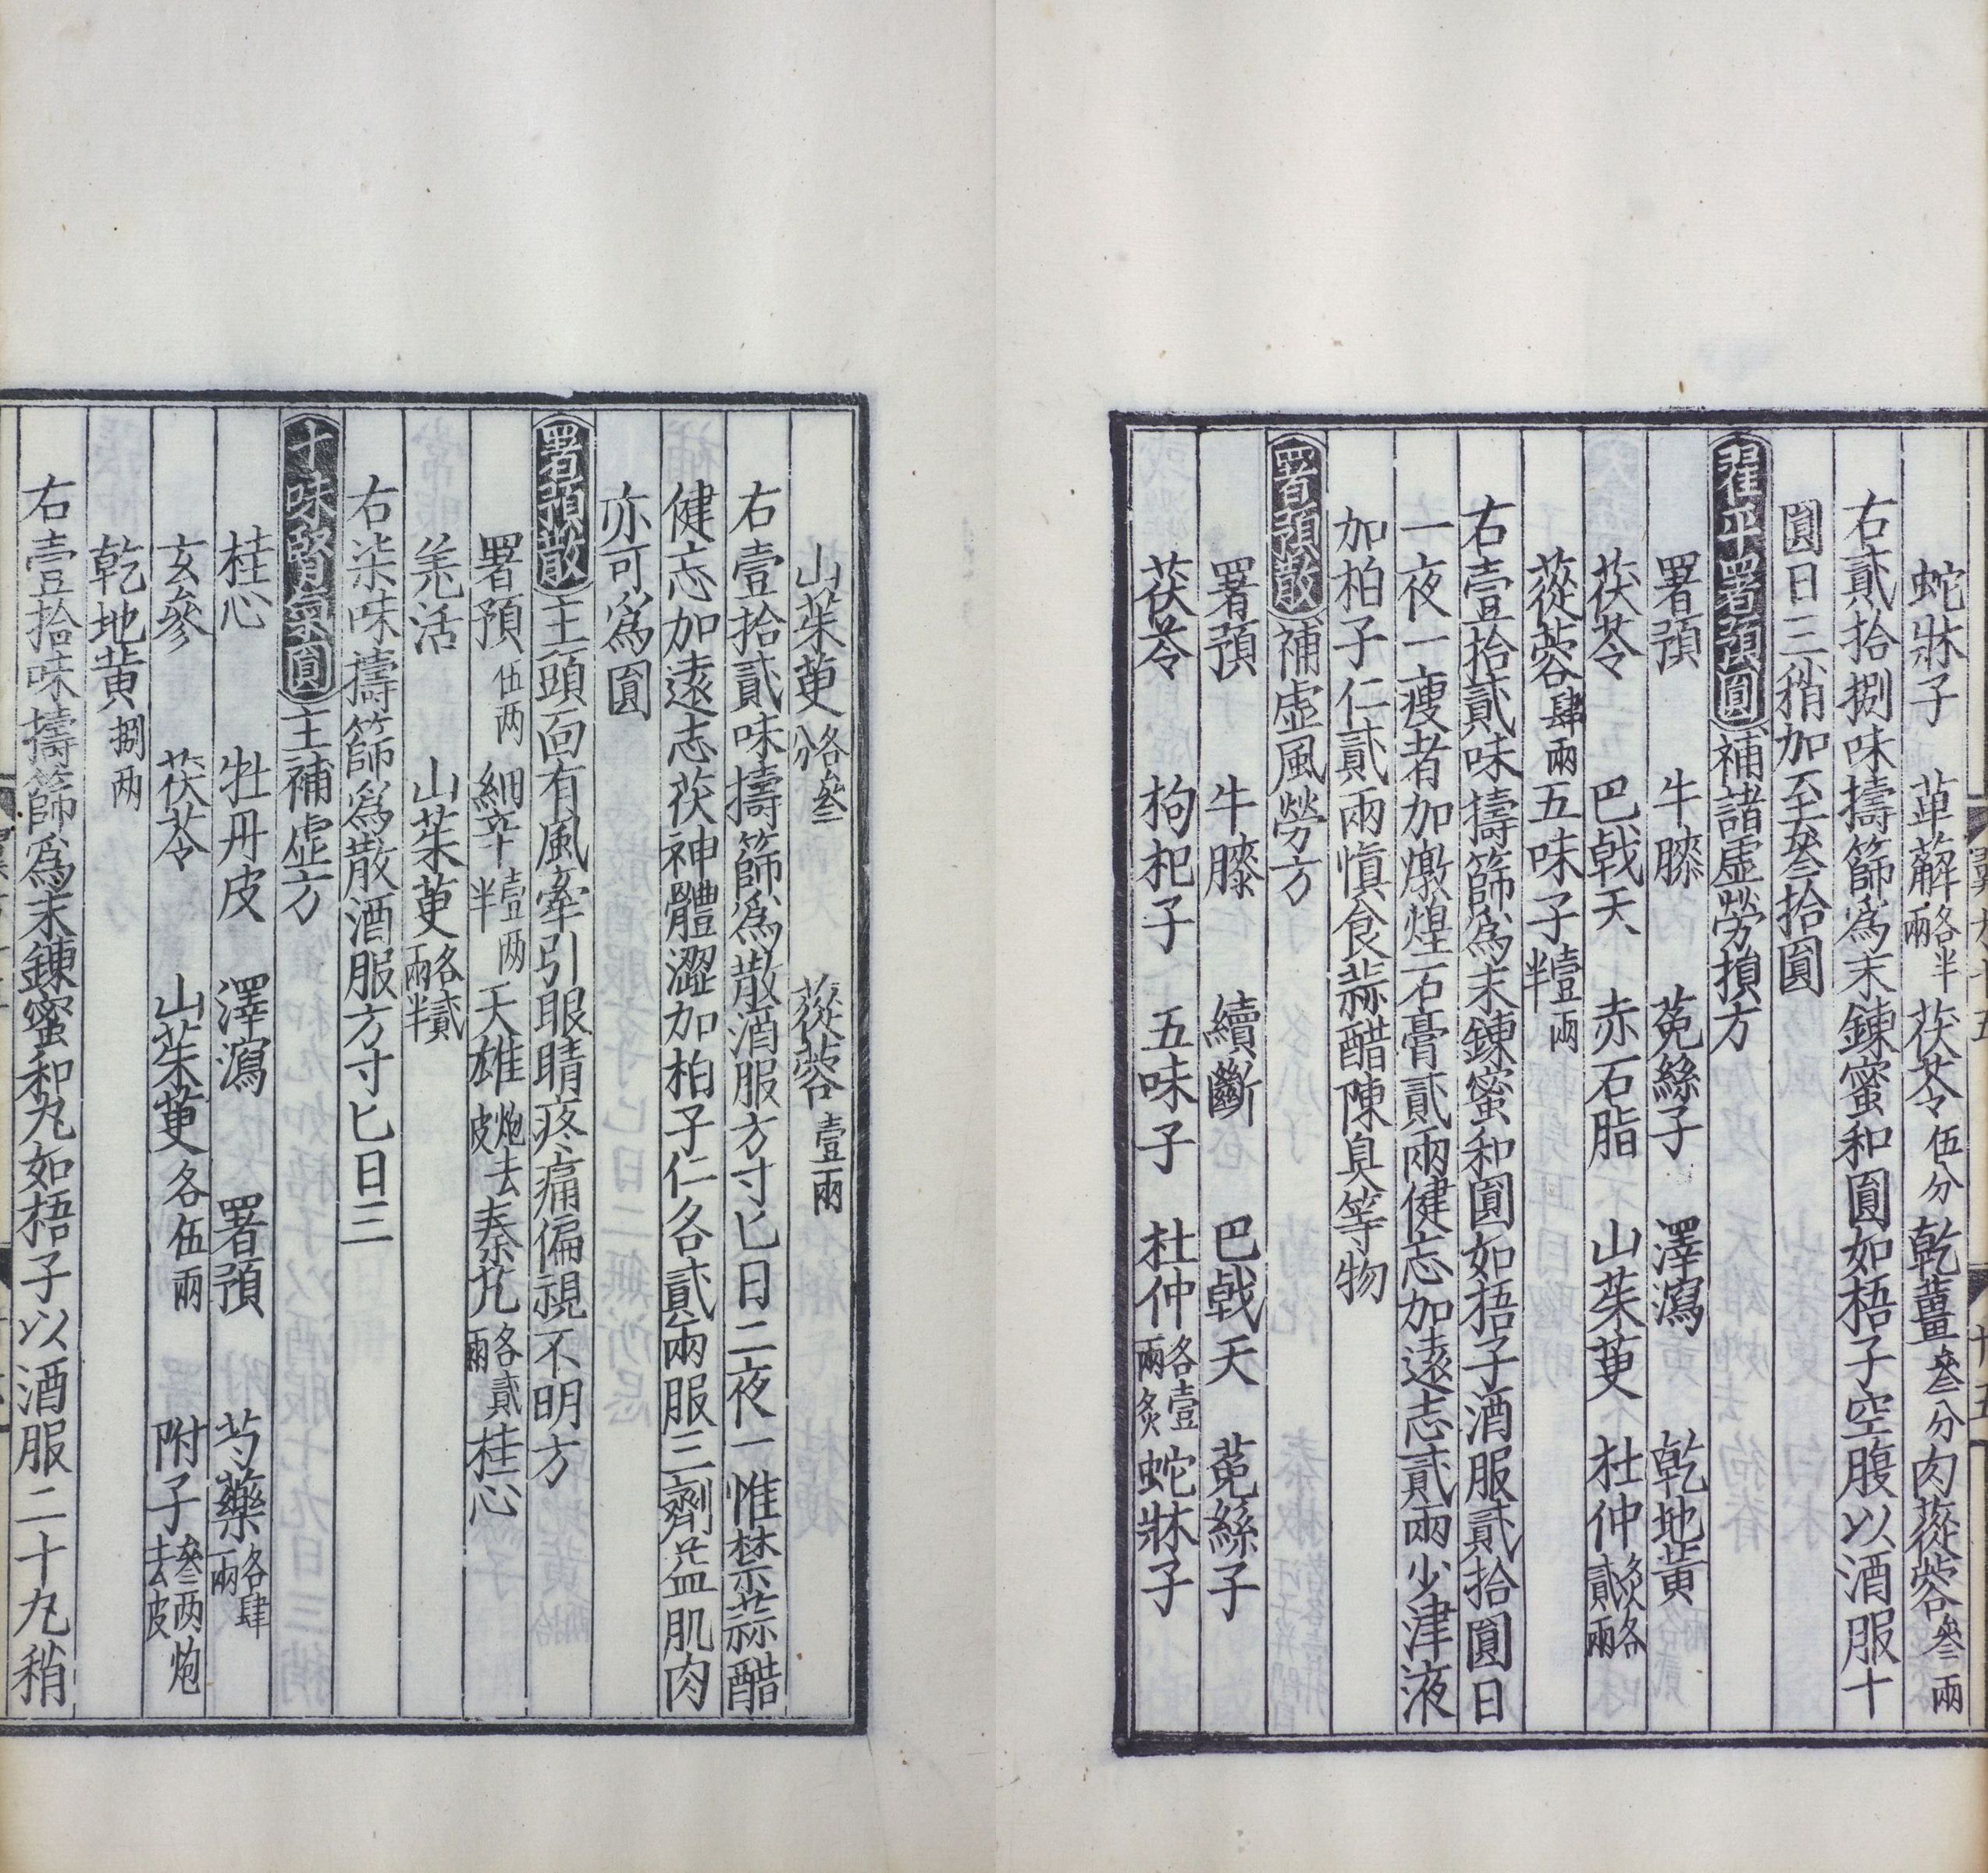 蛇牀子 萆薢各半兩 茯苓伍分 乾薑叄分 肉蓯蓉叄兩
右貳拾捌味擣篩為末鍊蜜和圓如梧子空腹以酒服十
圓日三稍加至叄拾圓
翟平署預圓補諸虛勞損方
署預 牛膝 菟絲子 澤瀉 乾地黃
茯苓 巴戟天 赤石脂 山茱萸 杜仲炙各貳兩
蓯蓉肆兩 五味子壹兩半
右壹拾貳味擣篩為末鍊蜜和圓如梧子酒服貳拾圓日
一夜一瘦者加燉煌石膏貳兩健忘加遠志貳兩少津液
加柏子仁貳兩慎食蒜醋陳臭等物
署預散補虛風勞方
署預 牛膝 續斷 巴戟天 菟絲子
茯苓 枸杞子 五味子 杜仲各壹兩炙 蛇牀子
山茱萸各叄分 蓯蓉壹兩
右壹拾貳味擣篩為散酒服方寸匕日二夜一惟禁蒜醋
健忘加遠志茯神體澀加柏子仁各貳兩服三劑益肌肉
亦可為圓
署預散主頭面有風牽引眼睛疼痛偏視不明方
署預伍两 細辛壹两半 天雄炮去皮 秦艽各貳兩 桂心
羌活 山茱萸各貳兩半
右柒味擣篩為散酒服方寸匕日三
十味腎氣圓主補虛方
桂心 牡丹皮 澤瀉 署預 芍藥各肆兩
玄參 茯苓 山茱萸各伍兩 附子叄两炮去皮
乾地黃捌两
右壹拾味擣篩為末鍊蜜和丸如梧子以酒服二十丸稍